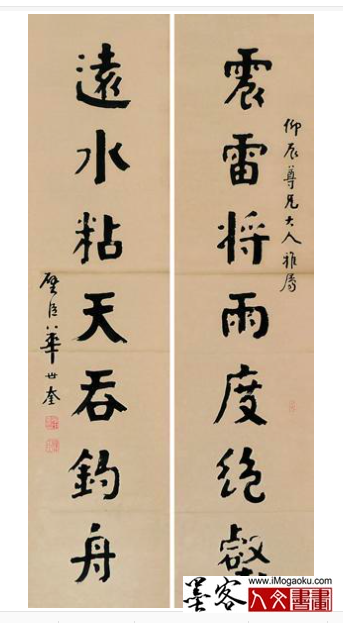 仰辰尊兄大人雅屬
震雷将雨度绝壑
遠水粘天吞釣舟
璧臣华世奎
墨客
www.iMogaoku.com
人文書畫